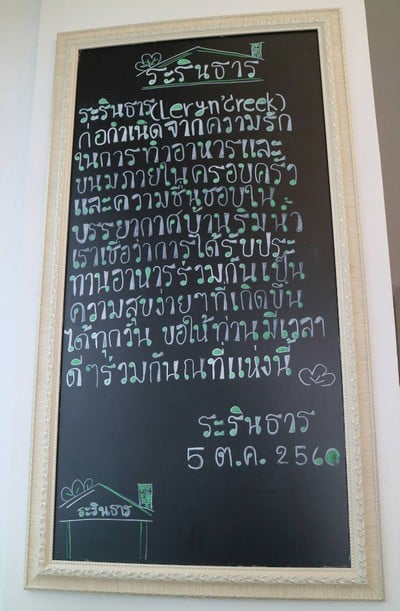 ระรินธาร
ระรินธาร(Leryn'Creek)
ก่อกำเนิดจากความรัก
ในการทำอาหารและ
ขนมภายในครอบครัว
และความชื่นชอบใน
บรรยากาศบ้านริมน้ำ
เราเชื่อว่าการได้รับประ
ทานอาหารร่วมกันเป็น
ความสุขง่ายๆที่เกิดขึ้น
ได้ทุกวัน ขอให้ท่านมีเวลา
ดีๆร่วมกันณที่แห่งนี้
ระรินธาร
5 ต.ค. 2560
ระรินธาร